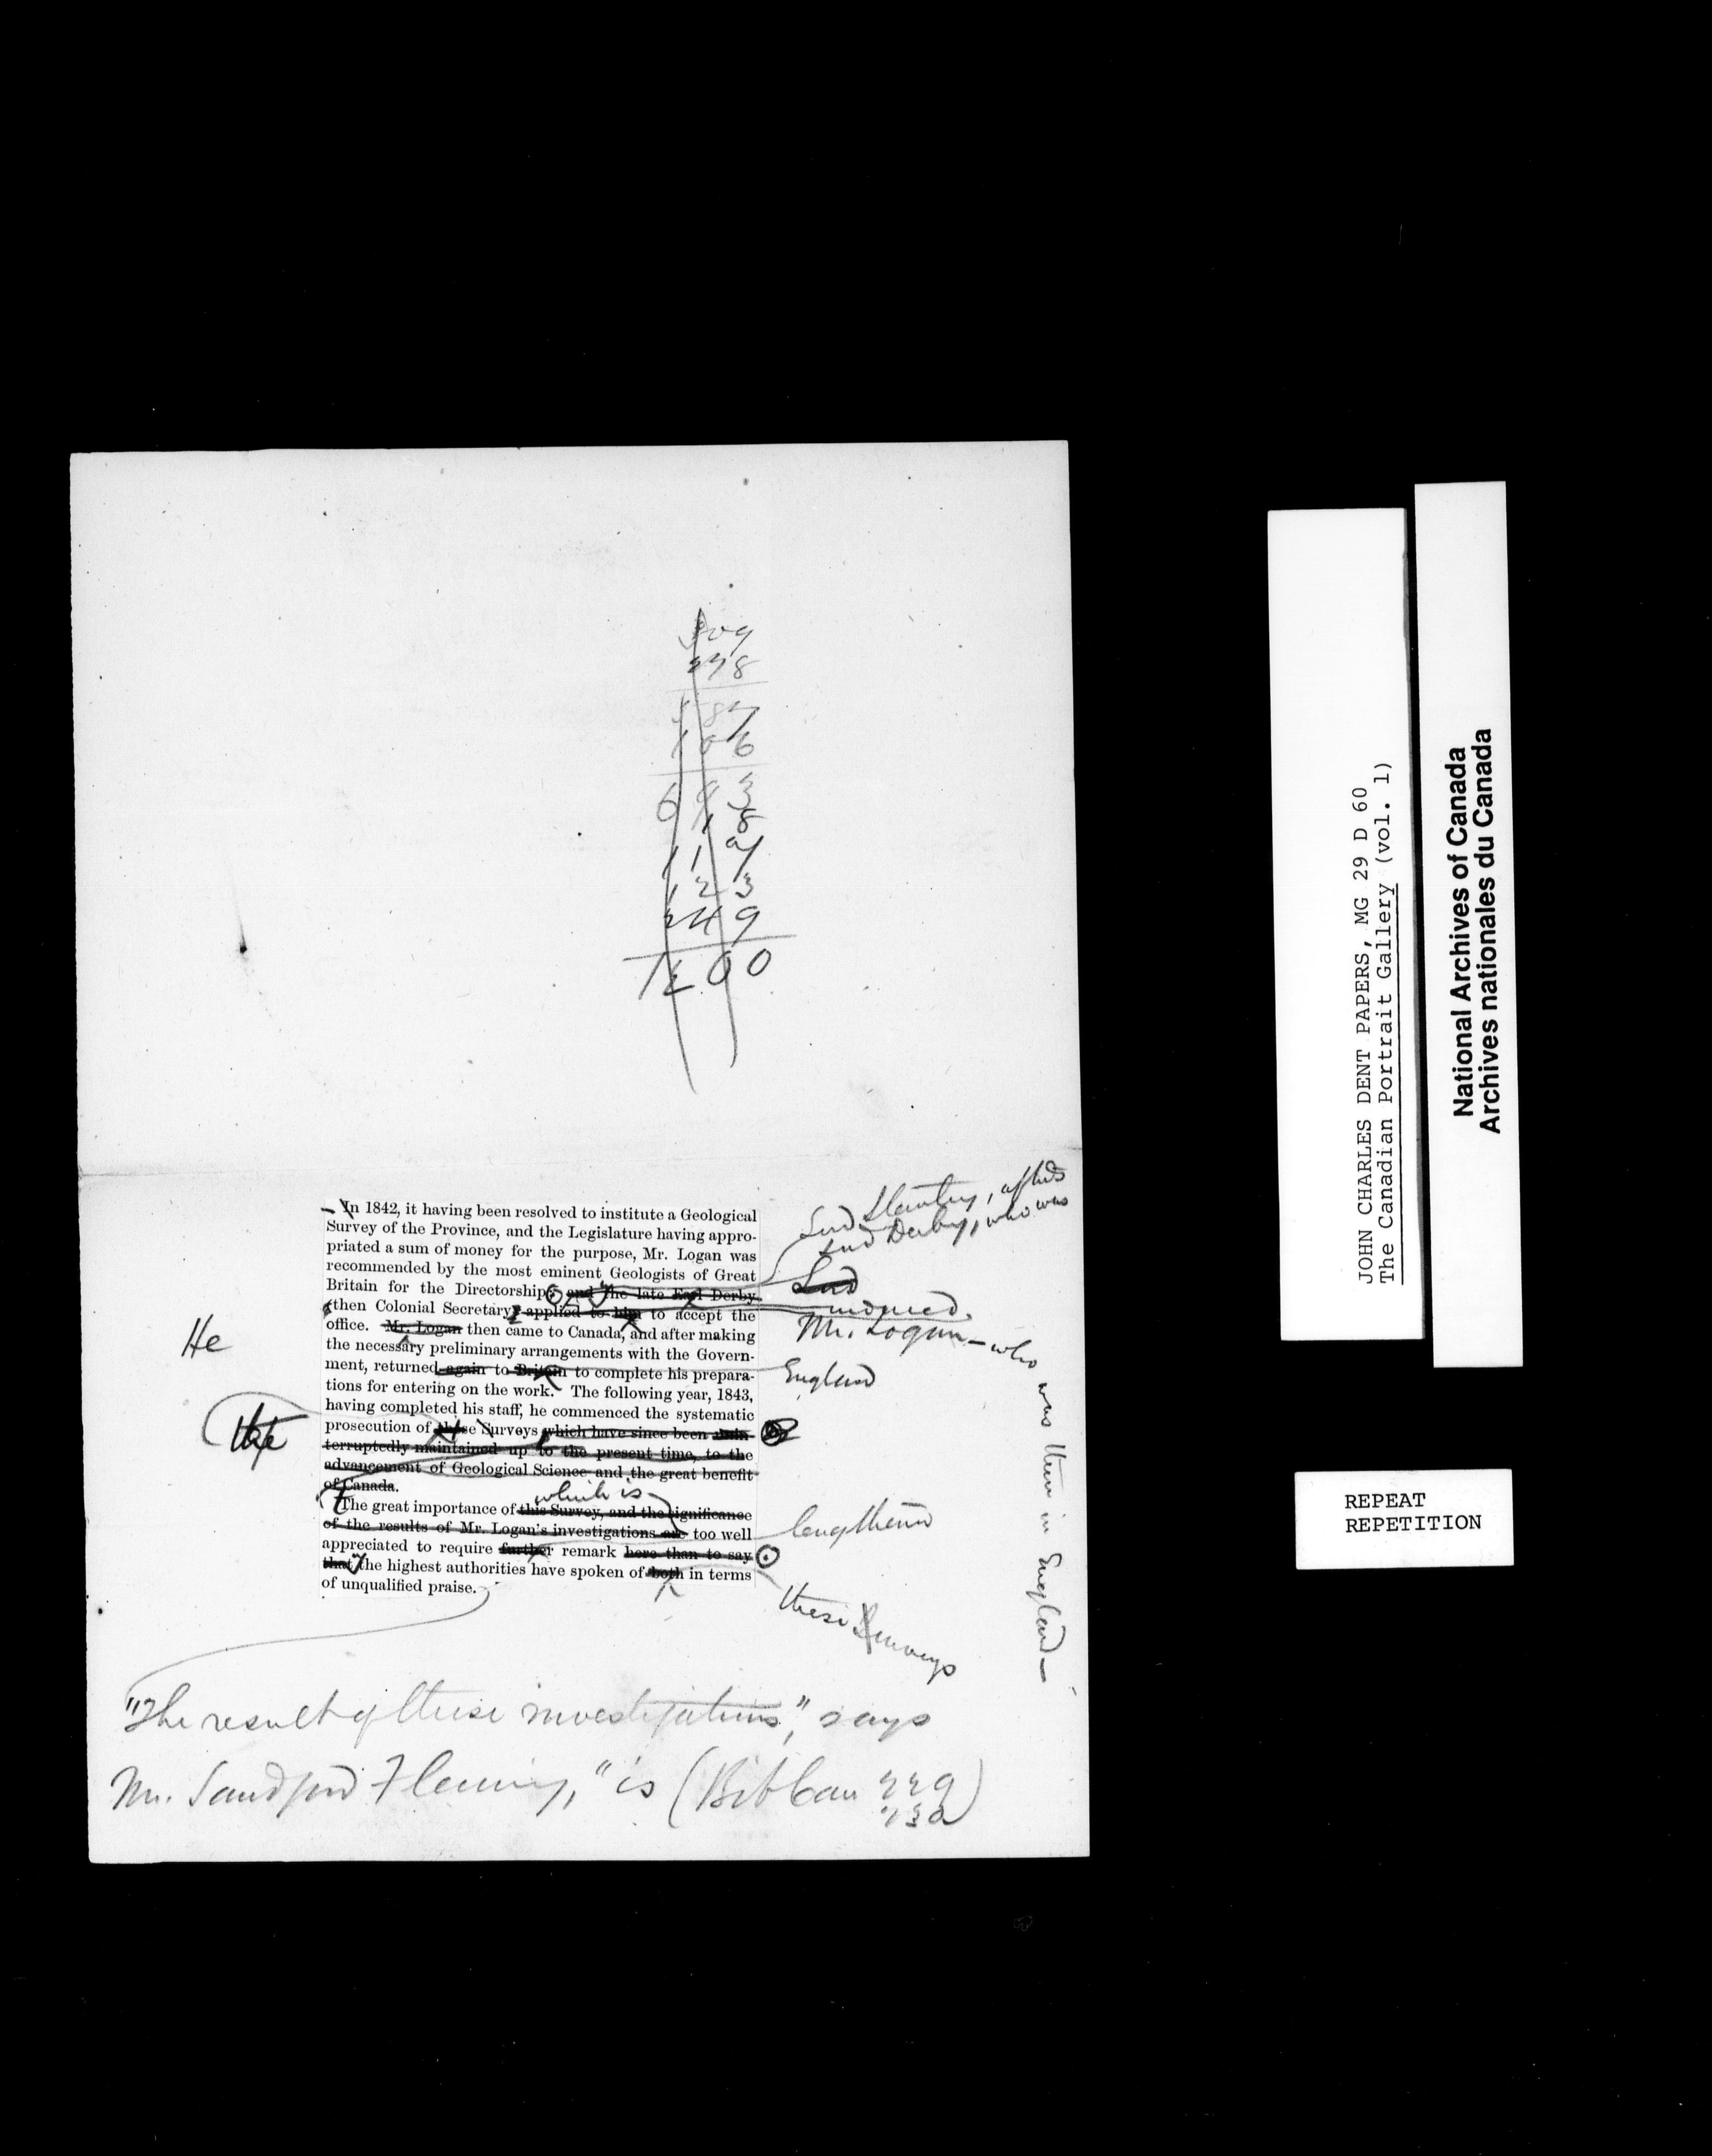 509
278
787
106
6 9 3
18
119
123
249
1200
In 1842, it having been resolved to institute a Geological
Survey of the Province, and the Legislature having appro-
priated a sum of money for the purpose, Mr. Logan was
recommended by the most eminent Geologists of Great
Britain for the Directorship, and the late Earl Derby
then Colonial Secretary, applied to him to accept the
office. Mr. Logan then came to Canada, and after making
the necessary preliminary arrangements with the Govern-
ment, returned again to Britain to complete his prepara-
tions for entering on the work. The following year, 1843,
having completed his staff, he commenced the systematic
prosecution of these Surveys which have since been unin-
terruptedly maintained up to the present time, to the
advancement of Geological Science and the great benefit
of Canada.
which is
The great importance of this Survey, and the significance
of the results of Mr. Logan's investigations are too well
appreciated to require further remark here than to say
that the highest authorities have spoken of both in terms
of unqualified praise.
He
the
Lord Stanley, aftds
Lord Derby, who was
Lord
induced
Mr. Logan — who was then in England —
England
lengthened
these Surveys
"The result of these investigations," says
Mr. Sandford Fleming, "is (Bib Can 229
230)
JOHN CHARLES DENT PAPERS, MG 29 D 60
The Canadian Portrait Gallery (vol. 1)
National Archives of Canada
Archives nationales du Canada
REPEAT
REPETITION